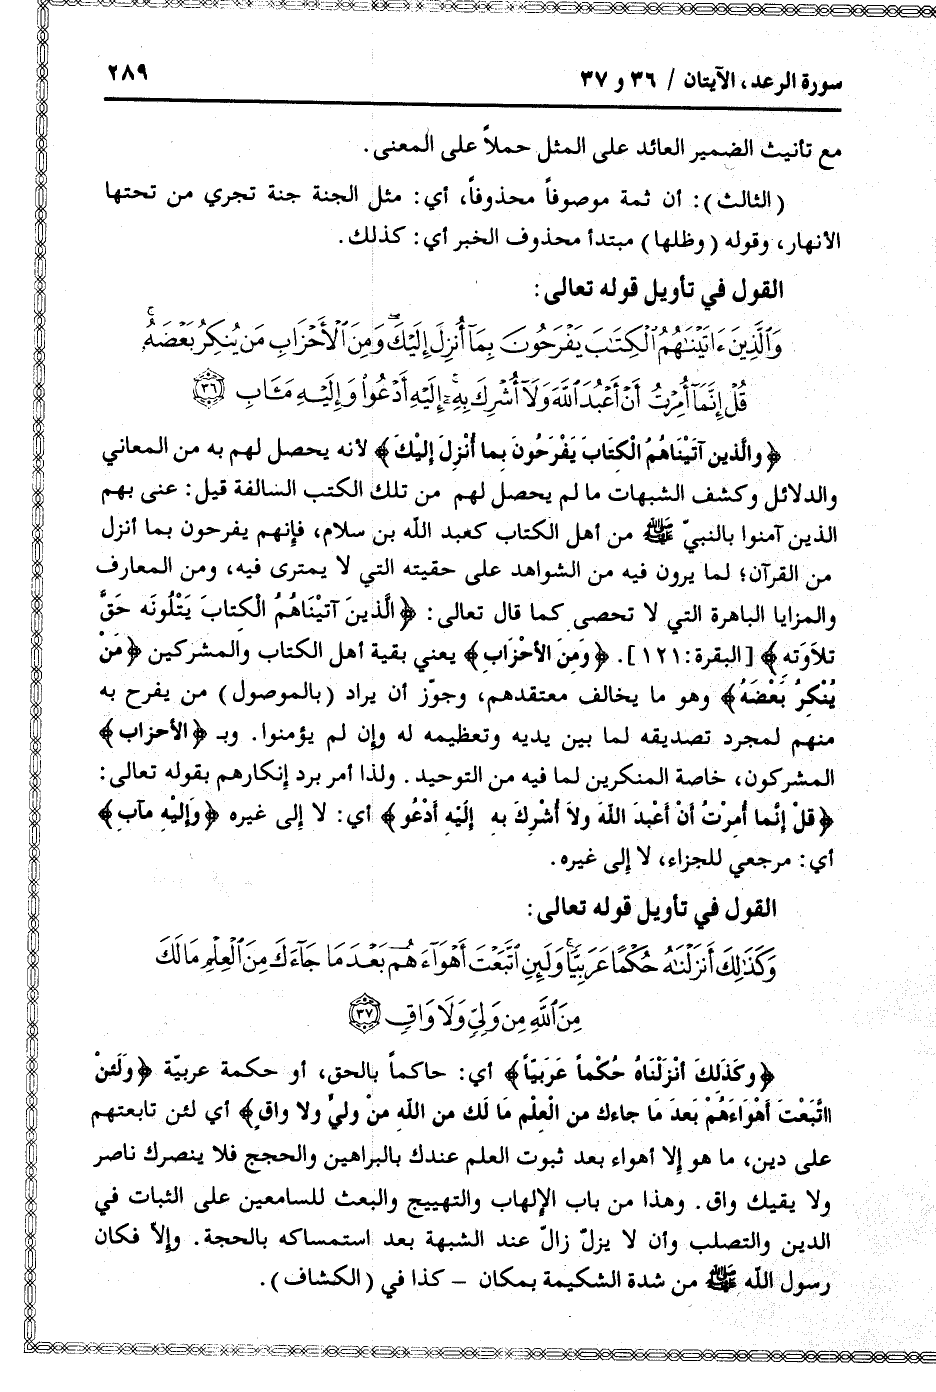 سورة الرعد، الآيتان / ٣٦ و ٣٧
٢٨٩
مع تأنيث الضمير العائد على المثل حملاً على المعنى.
(الثالث): أن ثمة موصوفاً محذوفاً، أي: مثل الجنة جنة تجري من تحتها
الأنهار، وقوله (وظلها) مبتدأ محذوف الخبر أي: كذلك.
القول في تأويل قوله تعالى:
وَٱلَّذِينَ ءَاتَيْنَـٰهُمُ ٱلْكِتَـٰبَ يَفْرَحُونَ بِمَآ أُنزِلَ إِلَيْكَ ۖ وَمِنَ ٱلْأَحْزَابِ مَن يُنكِرُ بَعْضَهُۥ ۚ
قُلْ إِنَّمَآ أُمِرْتُ أَنْ أَعْبُدَ ٱللَّهَ وَلَآ أُشْرِكَ بِهِۦٓ ۚ إِلَيْهِ أَدْعُوا۟ وَإِلَيْهِ مَـَٔابِ ٣٦
﴿والَّذين آتَيْنَاهُمُ الْكتَابَ يَفْرَحُونَ بِما أُنْزِلَ إِليْكَ﴾ لأنه يحصل لهم به من المعاني
والدلائل وكشف الشبهات ما لم يحصل لهم من تلك الكتب السالفة قيل: عنى بهم
الذين آمنوا بالنبيّ ﷺ من أهل الكتاب كعبد الله بن سلام، فإنهم يفرحون بما أنزل
من القرآن؛ لما يرون فيه من الشواهد على حقيته التي لا يمترى فيه، ومن المعارف
والمزايا الباهرة التي لا تحصى كما قال تعالى: ﴿الَّذينَ آتيْنَاهُمُ الْكتابَ يَتْلُونَه حَقَّ
تلاوَته﴾ [البقرة:١٢١]. ﴿وَمنَ الأحْزاب﴾ يعني بقية أهل الكتاب والمشركين ﴿مَنْ
يُنْكرُ بَعْضَهُ﴾ وهو ما يخالف معتقدهم، وجوّز أن يراد (بالموصول) من يفرح به
منهم لمجرد تصديقه لما بين يديه وتعظيمه له وإن لم يؤمنوا. وبـ ﴿الأحزاب﴾
المشركون، خاصة المنكرين لما فيه من التوحيد. ولذا أمر برد إنكارهم بقوله تعالى:
﴿قلْ إنَّما أُمرْتُ أَنْ أَعْبدَ اللهَ ولاَ أُشْركَ به إِلَيْه أَدْعُو﴾ أي: لا إلى غيره ﴿وَإليْه مآب﴾
أي: مرجعي للجزاء، لا إلى غيره.
القول في تأويل قوله تعالى:
وَكَذَٰلِكَ أَنزَلْنَـٰهُ حُكْمًا عَرَبِيًّا ۚ وَلَئِنِ ٱتَّبَعْتَ أَهْوَآءَهُم بَعْدَ مَا جَآءَكَ مِنَ ٱلْعِلْمِ مَا لَكَ
مِنَ ٱللَّهِ مِن وَلِىٍّ وَلَا وَاقٍ ٣٧
﴿وكَذَلكَ أنْزَلْنَاهُ حُكْماً عَرَبيّاً﴾ أي: حاكماً بالحق، أو حكمة عربيّة ﴿وَلَئنْ
ااتَّبَعْتَ أهْوَاءَهُمْ بَعدَ مَا جاءك من الْعلْم مَا لَك من الله منْ وليٍّ ولا واق﴾ أي لئن تابعتهم
على دين، ما هو إلا أهواء بعد ثبوت العلم عندك بالبراهين والحجج فلا ينصرك ناصر
ولا يقيك واق. وهذا من باب الإلهاب والتهييج والبعث للسامعين على الثبات في
الدين والتصلب وأن لا يزلّ زالّ عند الشبهة بعد استمساكه بالحجة. وإلاّ فكان
رسول الله ﷺ من شدة الشكيمة بمكان – كذا في (الكشاف).